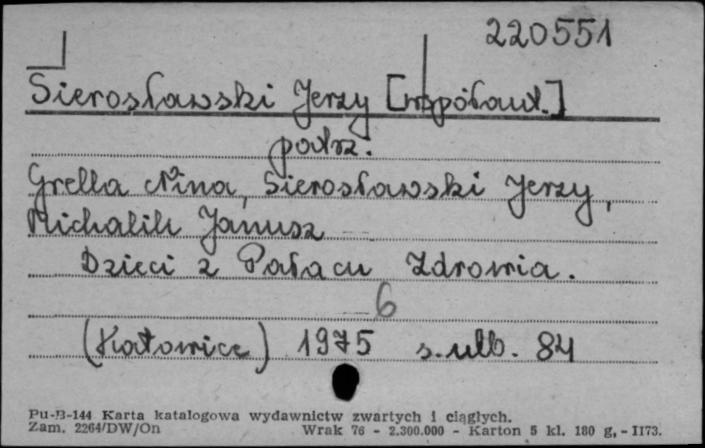 220551
Sierosławski Jerzy [współaut.]
patrz.
Grella Nina, Sierosławski Jerzy,
Michalik Janusz
Dzieci z Pałacu Zdrowia.
6
(Katowice) 1975 s. nlb. 84
Pu-B-144 Karta katalogowa wydawnictw zwartych i ciągłych.
Zam. 2264/DW/On Wrak 76 - 2.300.000 - Karton 5 kl. 180 g, - II73.